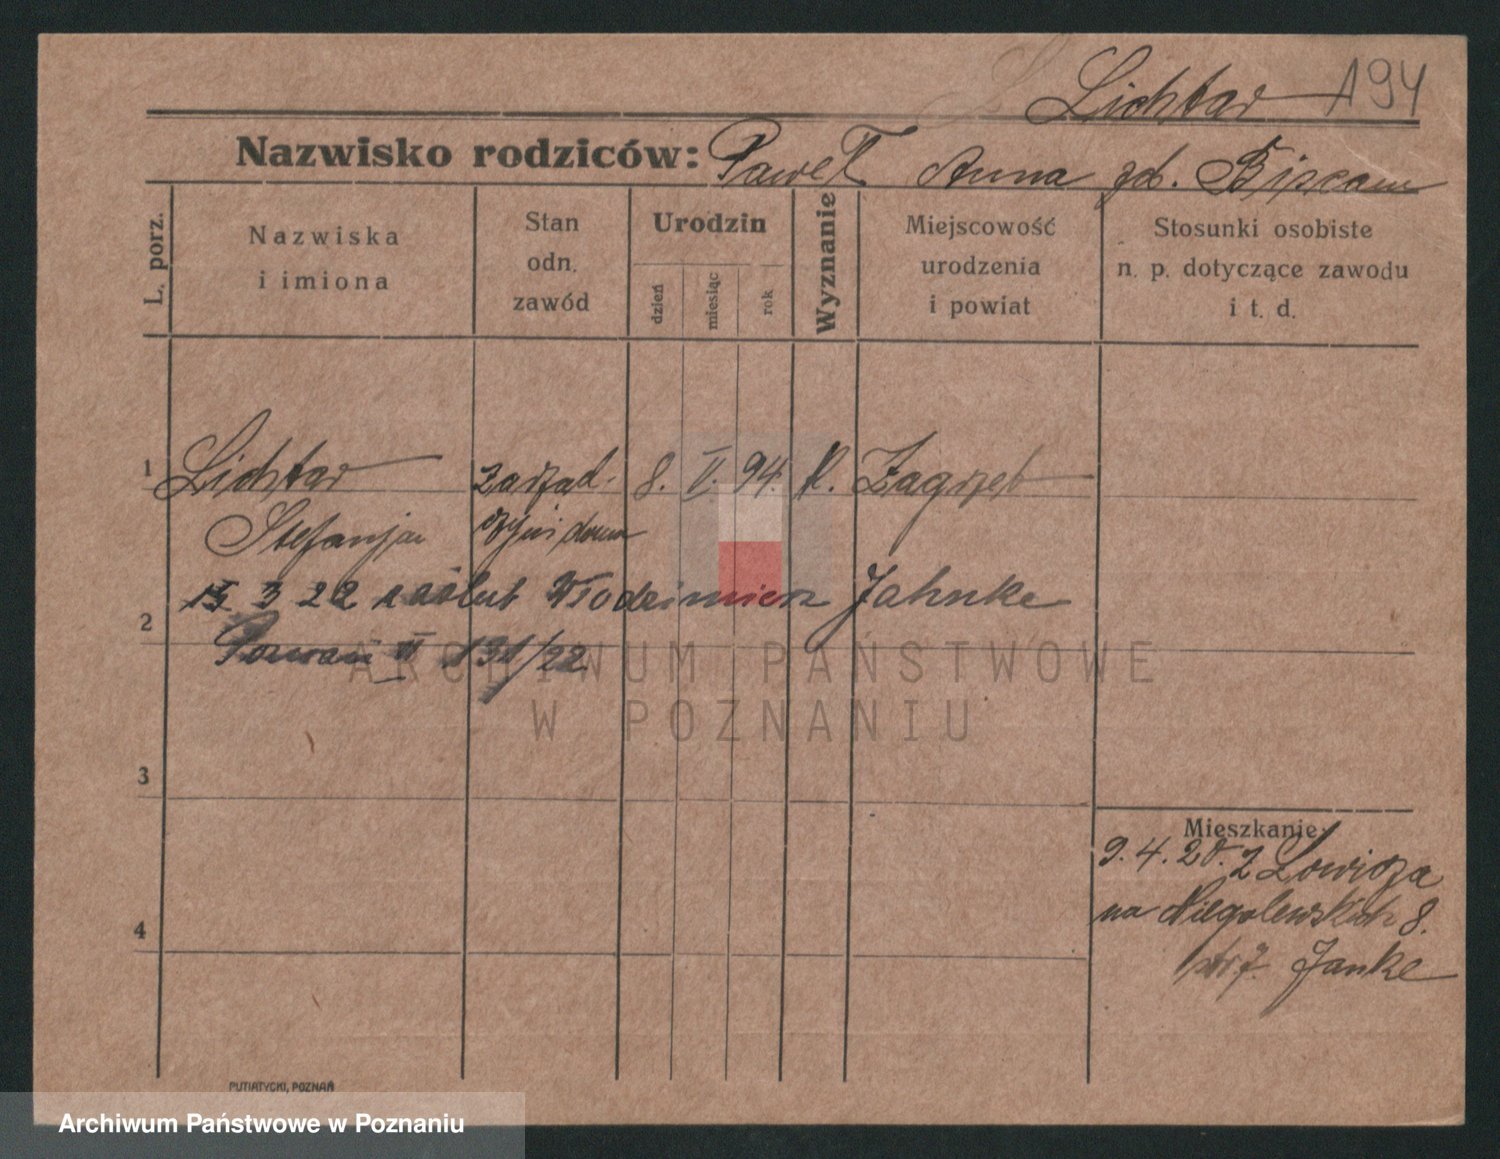 Lichtar 194
Nazwisko rodziców: Paweł Anna zd.
L. porz.
Nazwiska i imiona
Stan odn. zawód
Urodzin
dzień
miesiąc
rok
Wyznanie
Miejscowość urodzenia i powiat
Stosunki osobiste n. p. dotyczące zawodu i t. d.
1 Lichtar zarząd. 8. II. 94. K. Zagrzeb
Stefanja
3 22 Włodzimierz Jahnke
2
Poznań III 191/22
ARCHIWUM PAŃSTWOWE
W POZNANIU
3
Mieszkanie:
9. 4. 20. z Łowicza
na Niegolewskich 8.
Janke
4
PUTIATYCKI, POZNAŃ
Archiwum Państwowe w Poznaniu